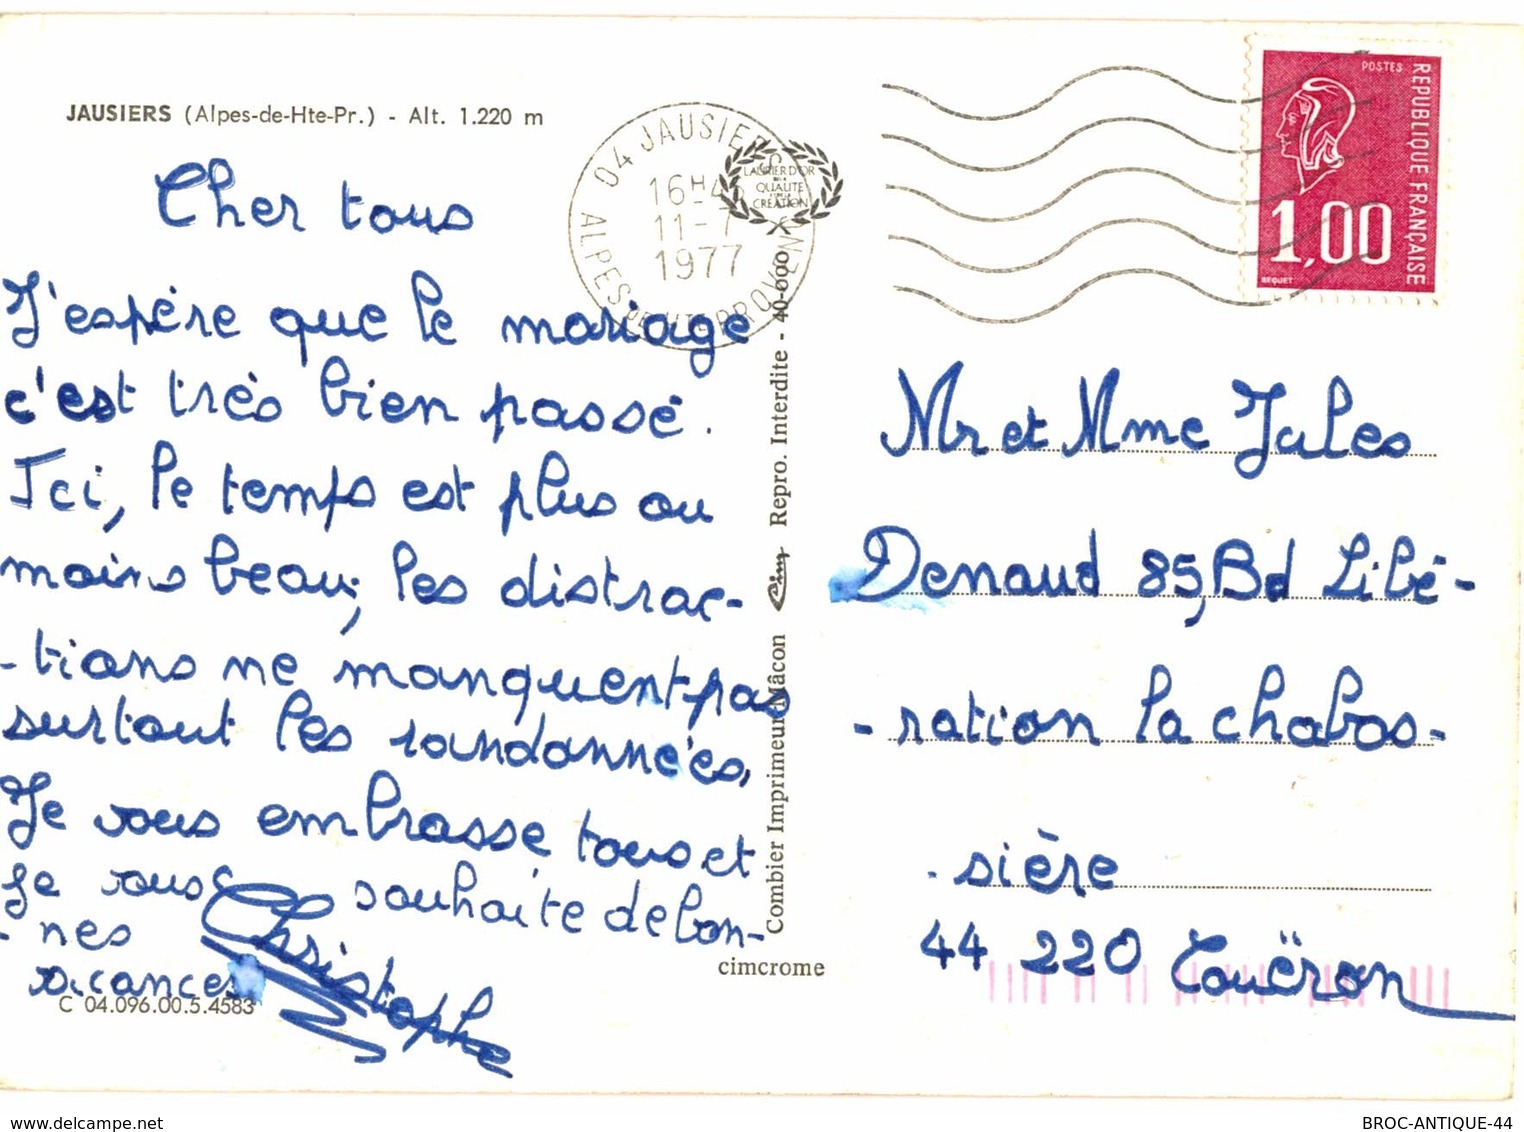 JAUSIERS (Alpes-de-Hte-Pr.) - Alt. 1.220 m
Cher tous
J'espère que le mariage
c'est très bien passé.
Ici, le temps est plus ou
moins beau, les distrac-
-tions ne manquent pas
surtout les randonnées.
Je vous embrasse tous et
je vous souhaite de bon-
-nes
vacances
Christophe
C 04.096.00.5.4583
04 JAUSIERS
16H45
11-7
1977
ALPES DE HTE PROVENCE
LAURIER D'OR
DE LA
QUALITE
CREATION
Combier Imprimeur Mâcon Cim Repro. Interdite - 40-000
cimcrome
POSTES
REPUBLIQUE FRANÇAISE
1,00
BEQUET
Mr et Mme Jules
Denaud 85, Bd Libé-
-ration la chabos-
-sière
44 220 Couëron
BROC-ANTIQUE-44